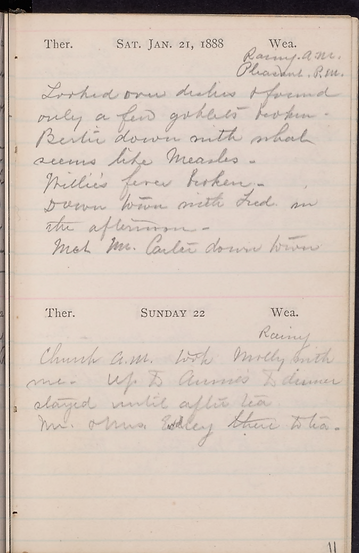 Ther. SAT. JAN. 21, 1888 Wea.
Rainy. A.M.
Pleasant. P.M.
Looked over dishes & found
only a few goblets broken -
Bertie down with what
seems like Measles -
Willie's fever broken -
Down town with Fred in
the afternoon -
Met Mr. Carter down town
Ther. SUNDAY 22 Wea.
Rainy
Church A.M. took Molly with
me - Up to Annie's to dinner
stayed until after tea
Mr. & Mrs. there to tea -
11